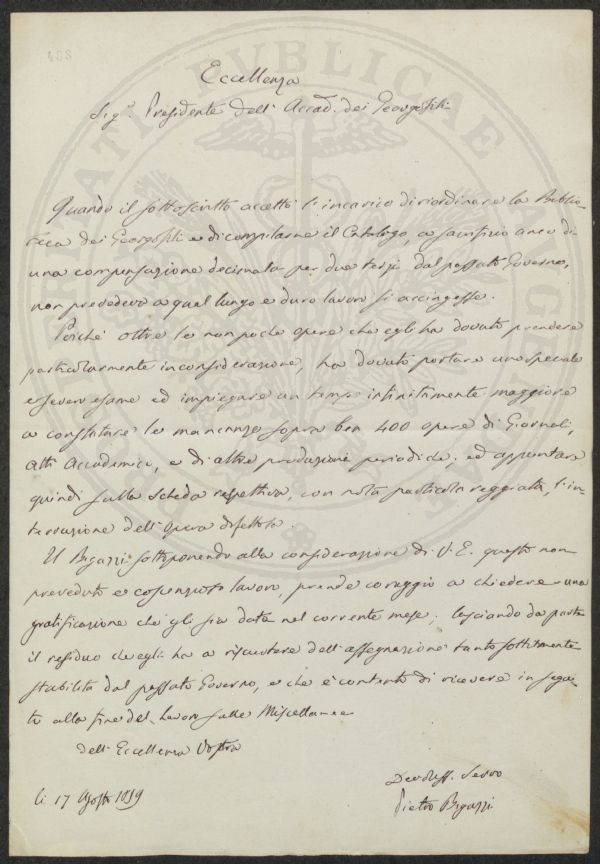 488
Eccellenza
Sig.r Presidente dell' Accad. dei Georgofili
Quando il sottoscritto accettò l'incarico di riordinare la Biblio-
teca dei Georgofili e di compilarne il Catalogo, a sacrifizio anco di
una compensazione decimata per due terzi dal passato Governo,
non prevedeva a qual lungo e duro lavoro si accingesse.
Poichè oltre le non poche opere che egli ha dovuto prendere
particolarmente in considerazione, ha dovuto portare uno speciale
e severo esame ed impiegare un tempo infinitamente maggiore
a constatare le mancanze sopra ben 400 opere di Giornali,
Atti Accademici, e di altre produzioni periodiche; ed appuntare
quindi sulla scheda respettiva, con nota particolareggiata, l'in-
terruzione dell'opera difettosa.
Il Bigazzi sottoponendo alla considerazione di V. E. questo non
preveduto e coscenzioso lavoro, prende coraggio a chiedere una
gratificazione che gli sia data nel corrente mese; lasciando da parte
il residuo che egli ha a riscuotere dell'assegnazione tanto sottilmente
stabilita dal passato Governo, e che è contento di ricevere in segui-
to alla fine del lavoro sulle Miscellanee
dell' Eccellenza Vostra
li 17 Agosto 1859
Devotiss. Servo
Pietro Bigazzi
PVBLICAE